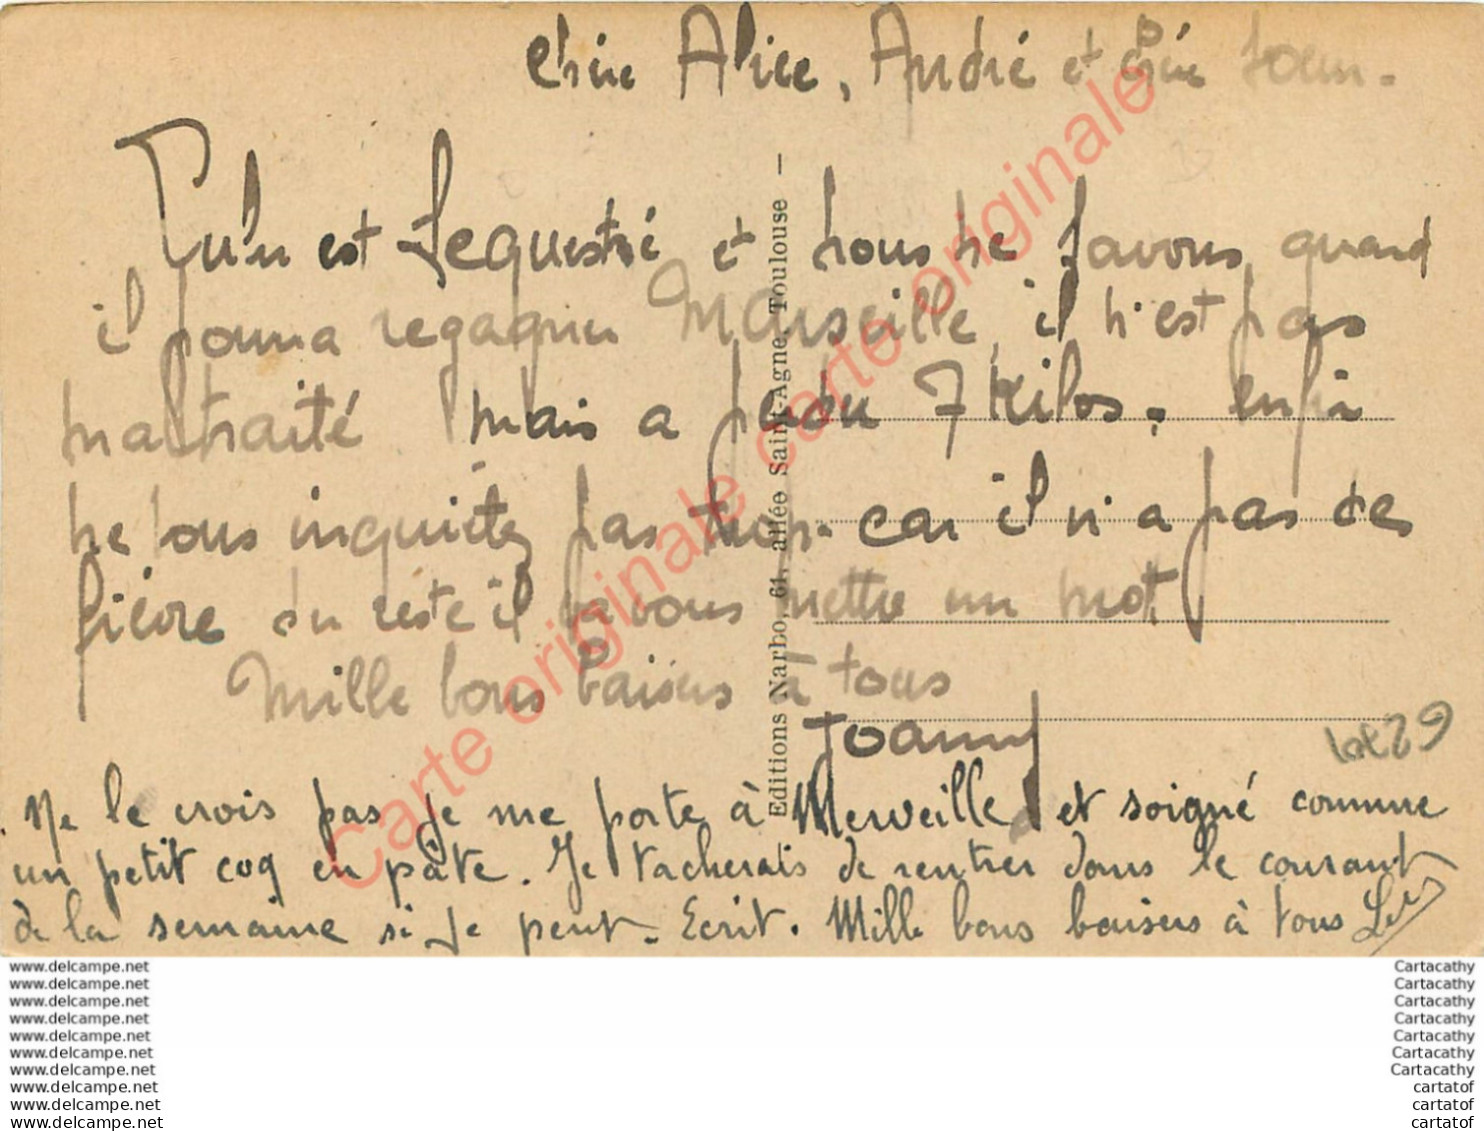 Chère Alice, André et chère
est sequestré et nous ne savons quand
il pourra regagner Marseille, il n'est pas
maltraité mais a perdu 7 Kilos. enfin
ne vous inquietez pas trop. car il n'a pas de
fièvre du reste il va vous mettre un mot.
Mille bons baisers à tous
Joanny
Ne le crois pas je me porte à Merveille et soigné comme
un petit coq en pâte. Je tacherais de rentrer dans le courant
de la semaine si je peut. Ecrit. Mille bons baisers à tous
Editions Narbo, 61, allée Saint-Agne, Toulouse —
lot 29
Carte originale carte originale
www.delcampe.net
www.delcampe.net
www.delcampe.net
www.delcampe.net
www.delcampe.net
www.delcampe.net
www.delcampe.net
www.delcampe.net
www.delcampe.net
www.delcampe.net
Cartacathy
Cartacathy
Cartacathy
Cartacathy
Cartacathy
Cartacathy
Cartacathy
cartatof
cartatof
cartatof